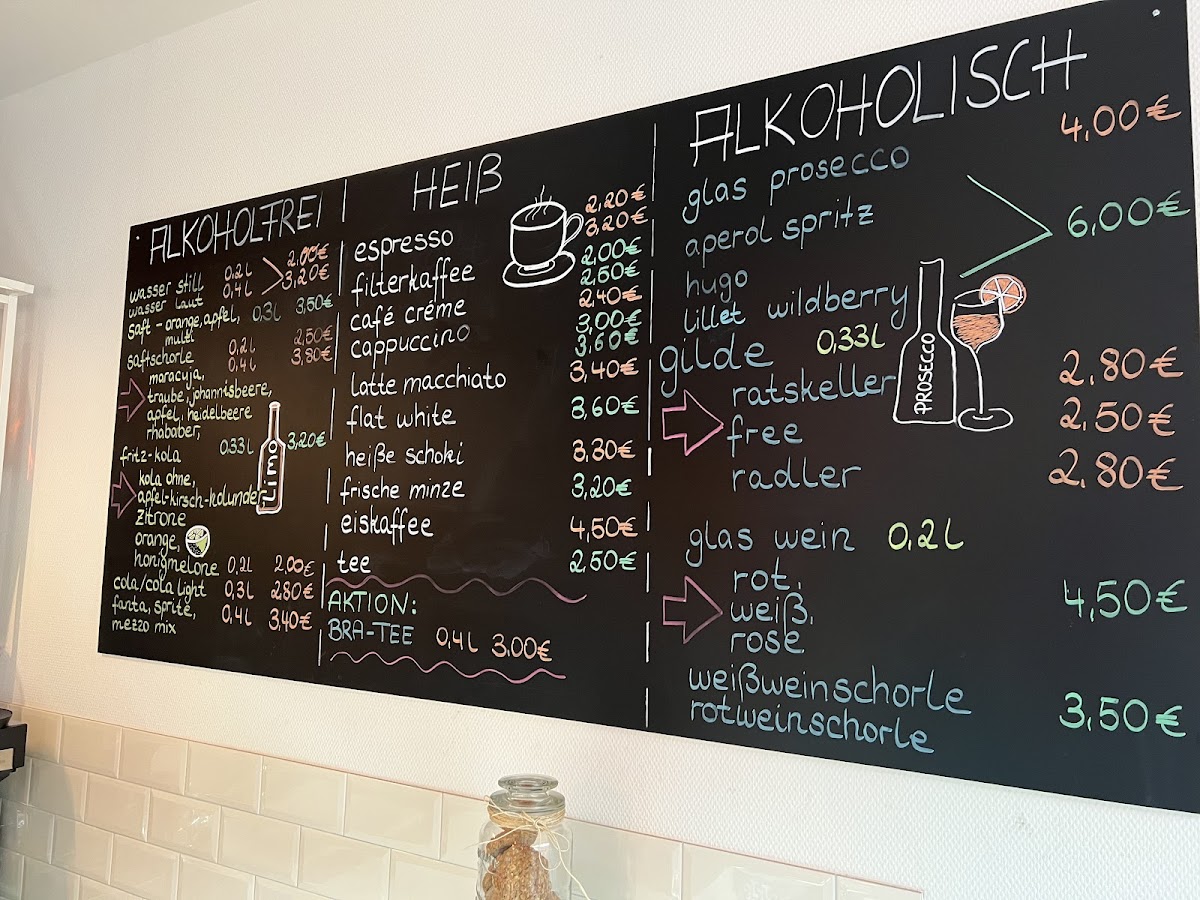 ALKOHOLFREI
wasser still 0,2l 2,00€
wasser laut 0,4l 3,20€
saft - orange, apfel, 0,3l 3,50€
multi
saftschorle 0,2l 2,50€
maracuja, 0,4l 3,80€
traube, johannisbeere,
apfel, heidelbeere
rhababer,
fritz-kola 0,33l 3,20€
kola ohne,
apfel-kirsch-holunder
zitrone
orange,
honigmelone 0,2l 2,00€
cola/cola light 0,3l 2,80€
fanta, sprite, 0,4l 3,40€
mezzo mix
limo
HEIß
2,20€
espresso 3,20€
2,00€
filterkaffee 2,50€
café créme 2,40€
3,00€
cappuccino 3,60€
latte macchiato 3,40€
flat white 3,60€
heiße schoki 3,30€
frische minze 3,20€
eiskaffee 4,50€
tee 2,50€
AKTION:
BRA-TEE 0,4l 3,00€
ALKOHOLISCH
glas prosecco 4,00€
aperol spritz 6,00€
hugo
lillet wildberry
gilde 0,33l
ratskeller 2,80€
free 2,50€
radler 2,80€
PROSECCO
glas wein 0,2l
rot,
weiß, 4,50€
rose
weißweinschorle
rotweinschorle 3,50€